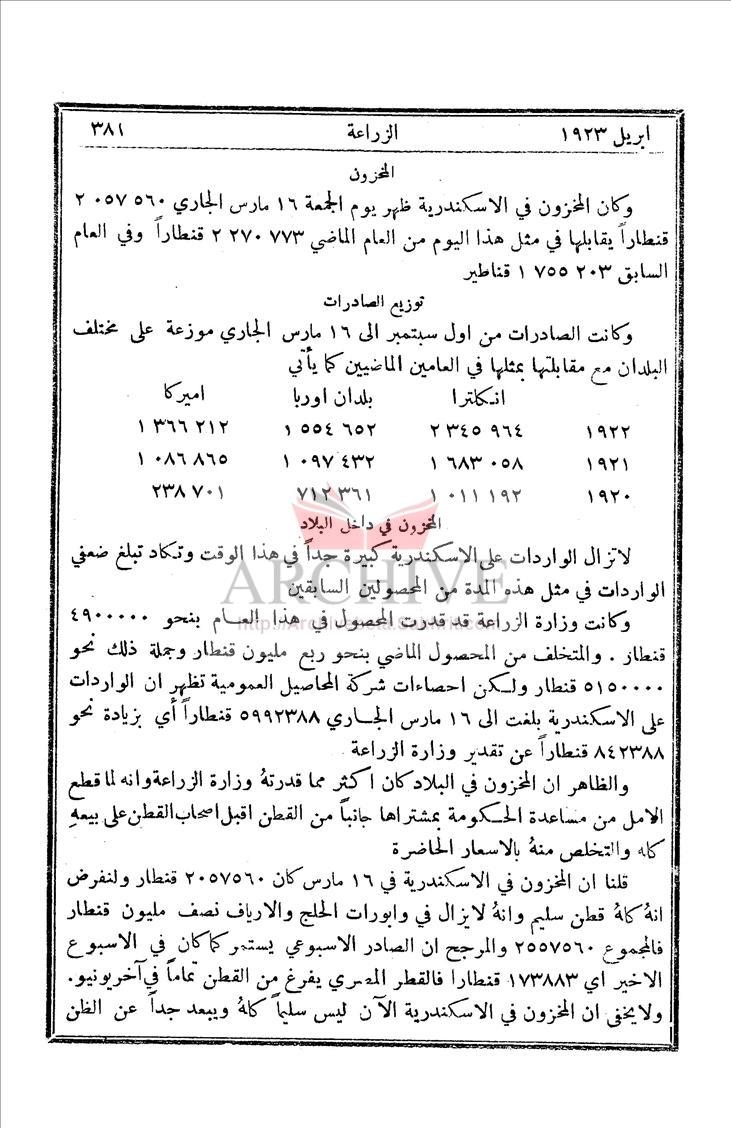 ابريل ١٩٢٣ الزراعة ٣٨١
المخزون
وكان المخزون في الاسكندرية ظهر يوم الجمعة ١٦ مارس الجاري ٥٦٠ ٠٥٧ ٢
قنطاراً يقابلها في مثل هذا اليوم من العام الماضي ٧٧٣ ٢٧٠ ٢ قنطاراً وفي العام
السابق ٢٠٣ ٧٥٥ ١ قناطير
توزيع الصادرات
وكانت الصادرات من اول سبتمبر الى ١٦ مارس الجاري موزعة على مختلف
البلدان مع مقابلتها بمثلها في العامين الماضيين كما يأتي
انكلترا بلدان اوربا اميركا
١٩٢٢ ٩٦٤ ٣٤٥ ٢ ٦٥٢ ٥٥٤ ١ ٢١٢ ٣٦٦ ١
١٩٢١ ٠٥٨ ٦٨٣ ١ ٤٣٢ ٠٩٧ ١ ٨٦٥ ٠٨٦ ١
١٩٢٠ ١٩٢ ٠١١ ١ ٣٦١ ٧١٢ ٧٠١ ٢٣٨
المخزون في داخل البلاد
لا تزال الواردات على الاسكندرية كبيرة جداً في هذا الوقت وتكاد تبلغ ضعفي
ARCHIVE
الواردات في مثل هذه المدة من المحصولين السابقين
وكانت وزارة الزراعة قد قدرت المحصول في هذا العام بنحو ٤٩٠٠٠٠٠
قنطار . والمتخلف من المحصول الماضي بنحو ربع مليون قنطار وجملة ذلك نحو
٥١٥٠٠٠٠ قنطار ولكن احصاءات شركة المحاصيل العمومية تظهر ان الواردات
على الاسكندرية بلغت الى ١٦ مارس الجاري ٥٩٩٢٣٨٨ قنطاراً أي بزيادة نحو
٨٤٢٣٨٨ قنطاراً عن تقدير وزارة الزراعة
والظاهر ان المخزون في البلاد كان اكثر مما قدرتهُ وزارة الزراعة وانه لما قطع
الامل من مساعدة الحكومة بمشتراها جانباً من القطن اقبل اصحاب القطن على بيعهِ
كله والتخلص منهُ بالاسعار الحاضرة
قلنا ان المخزون في الاسكندرية في ١٦ مارس كان ٢٠٥٧٥٦٠ قنطار ولنفرض
انهُ كلهُ قطن سليم وانهُ لا يزال في وابورات الحلج والارياف نصف مليون قنطار
فالمجموع ٢٥٥٧٥٦٠ والمرجح ان الصادر الاسبوعي يستمر كما كان في الاسبوع
الاخير اي ١٧٣٨٨٣ قنطارا فالقطر المصري يفرغ من القطن تماماً في آخر يونيو.
ولا يخفى ان المخزون في الاسكندرية الآن ليس سليماً كلهُ ويبعد جداً عن الظن